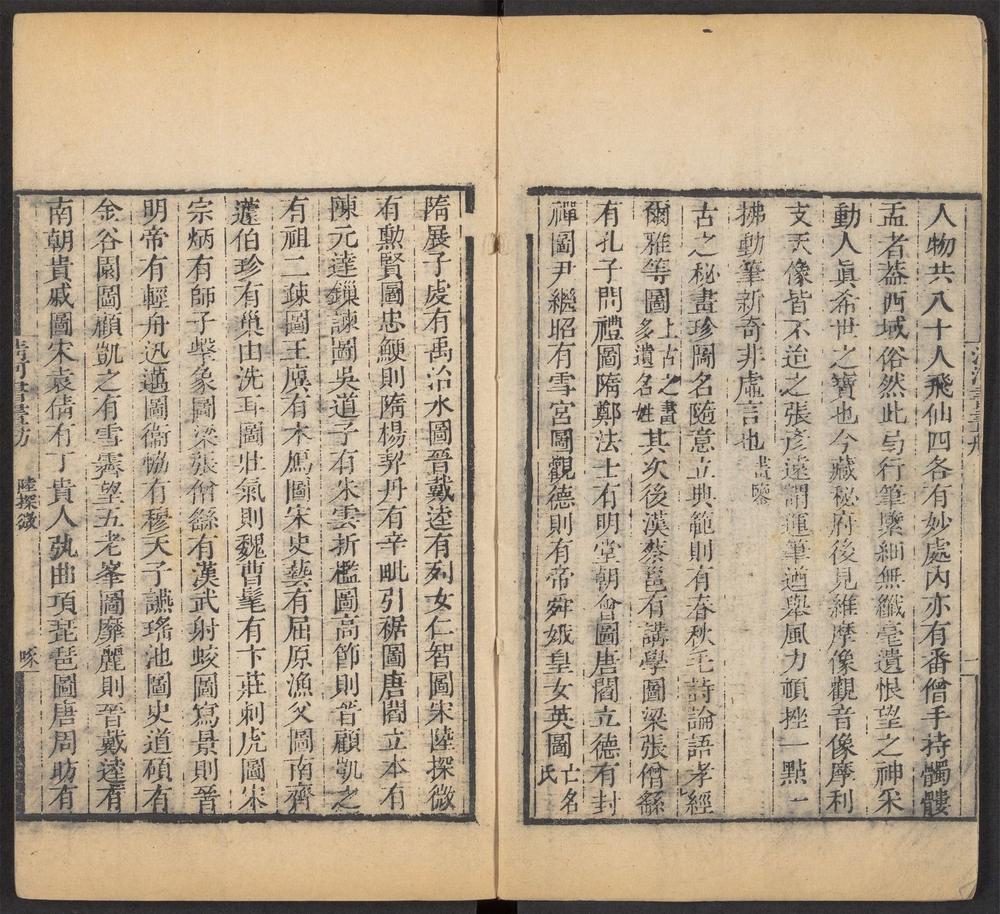 人物共八十人飛仙四各有妙處內亦有番僧手持髑髏
盂者蓋西域俗然此卷行筆緊細無纖毫遺恨望之神采
動人眞希世之寶也今藏秘府後見維摩像觀音像摩利
支天像皆不迨之張彥遠謂運筆遒舉風力頓挫一點一
拂動筆新奇非虛言也畫鑒
古之秘畫珍圖名隨意立典範則有春秋毛詩論語孝經
爾雅等圖上古之畫多遺名姓其次後漢蔡邕有講學圖梁張僧繇
有孔子問禮圖隋鄭法士有明堂朝會圖唐閻立德有封
禪圖尹繼昭有雪宮圖觀德則有帝舜娥皇女英圖亡名氏
隋展子虔有禹治水圖晉戴逵有列女仁智圖宋陸探微
有勳賢圖忠鯁則隋楊契丹有辛毗引裾圖唐閻立本有
陳元達鏁諫圖吳道子有朱雲折檻圖高節則晉顧凱之
有祖二疎圖王廙有木鴈圖宋史藝有屈原漁父圖南齊
蘧伯珍有巢由洗耳圖壯氣則魏曹髦有卞莊刺虎圖宋
宗炳有師子擊象圖梁張僧繇有漢武射蛟圖寫景則晉
明帝有輕舟迅邁圖衛恊有穆天子讌瑤池圖史道碩有
金谷園圖顧凱之有雪霽望五老峯圖靡麗則晉戴逵有
南朝貴戚圖宋袁倩有丁貴人彈曲項琵琶圖唐周昉有
清河書畫舫 陸探微 啄一